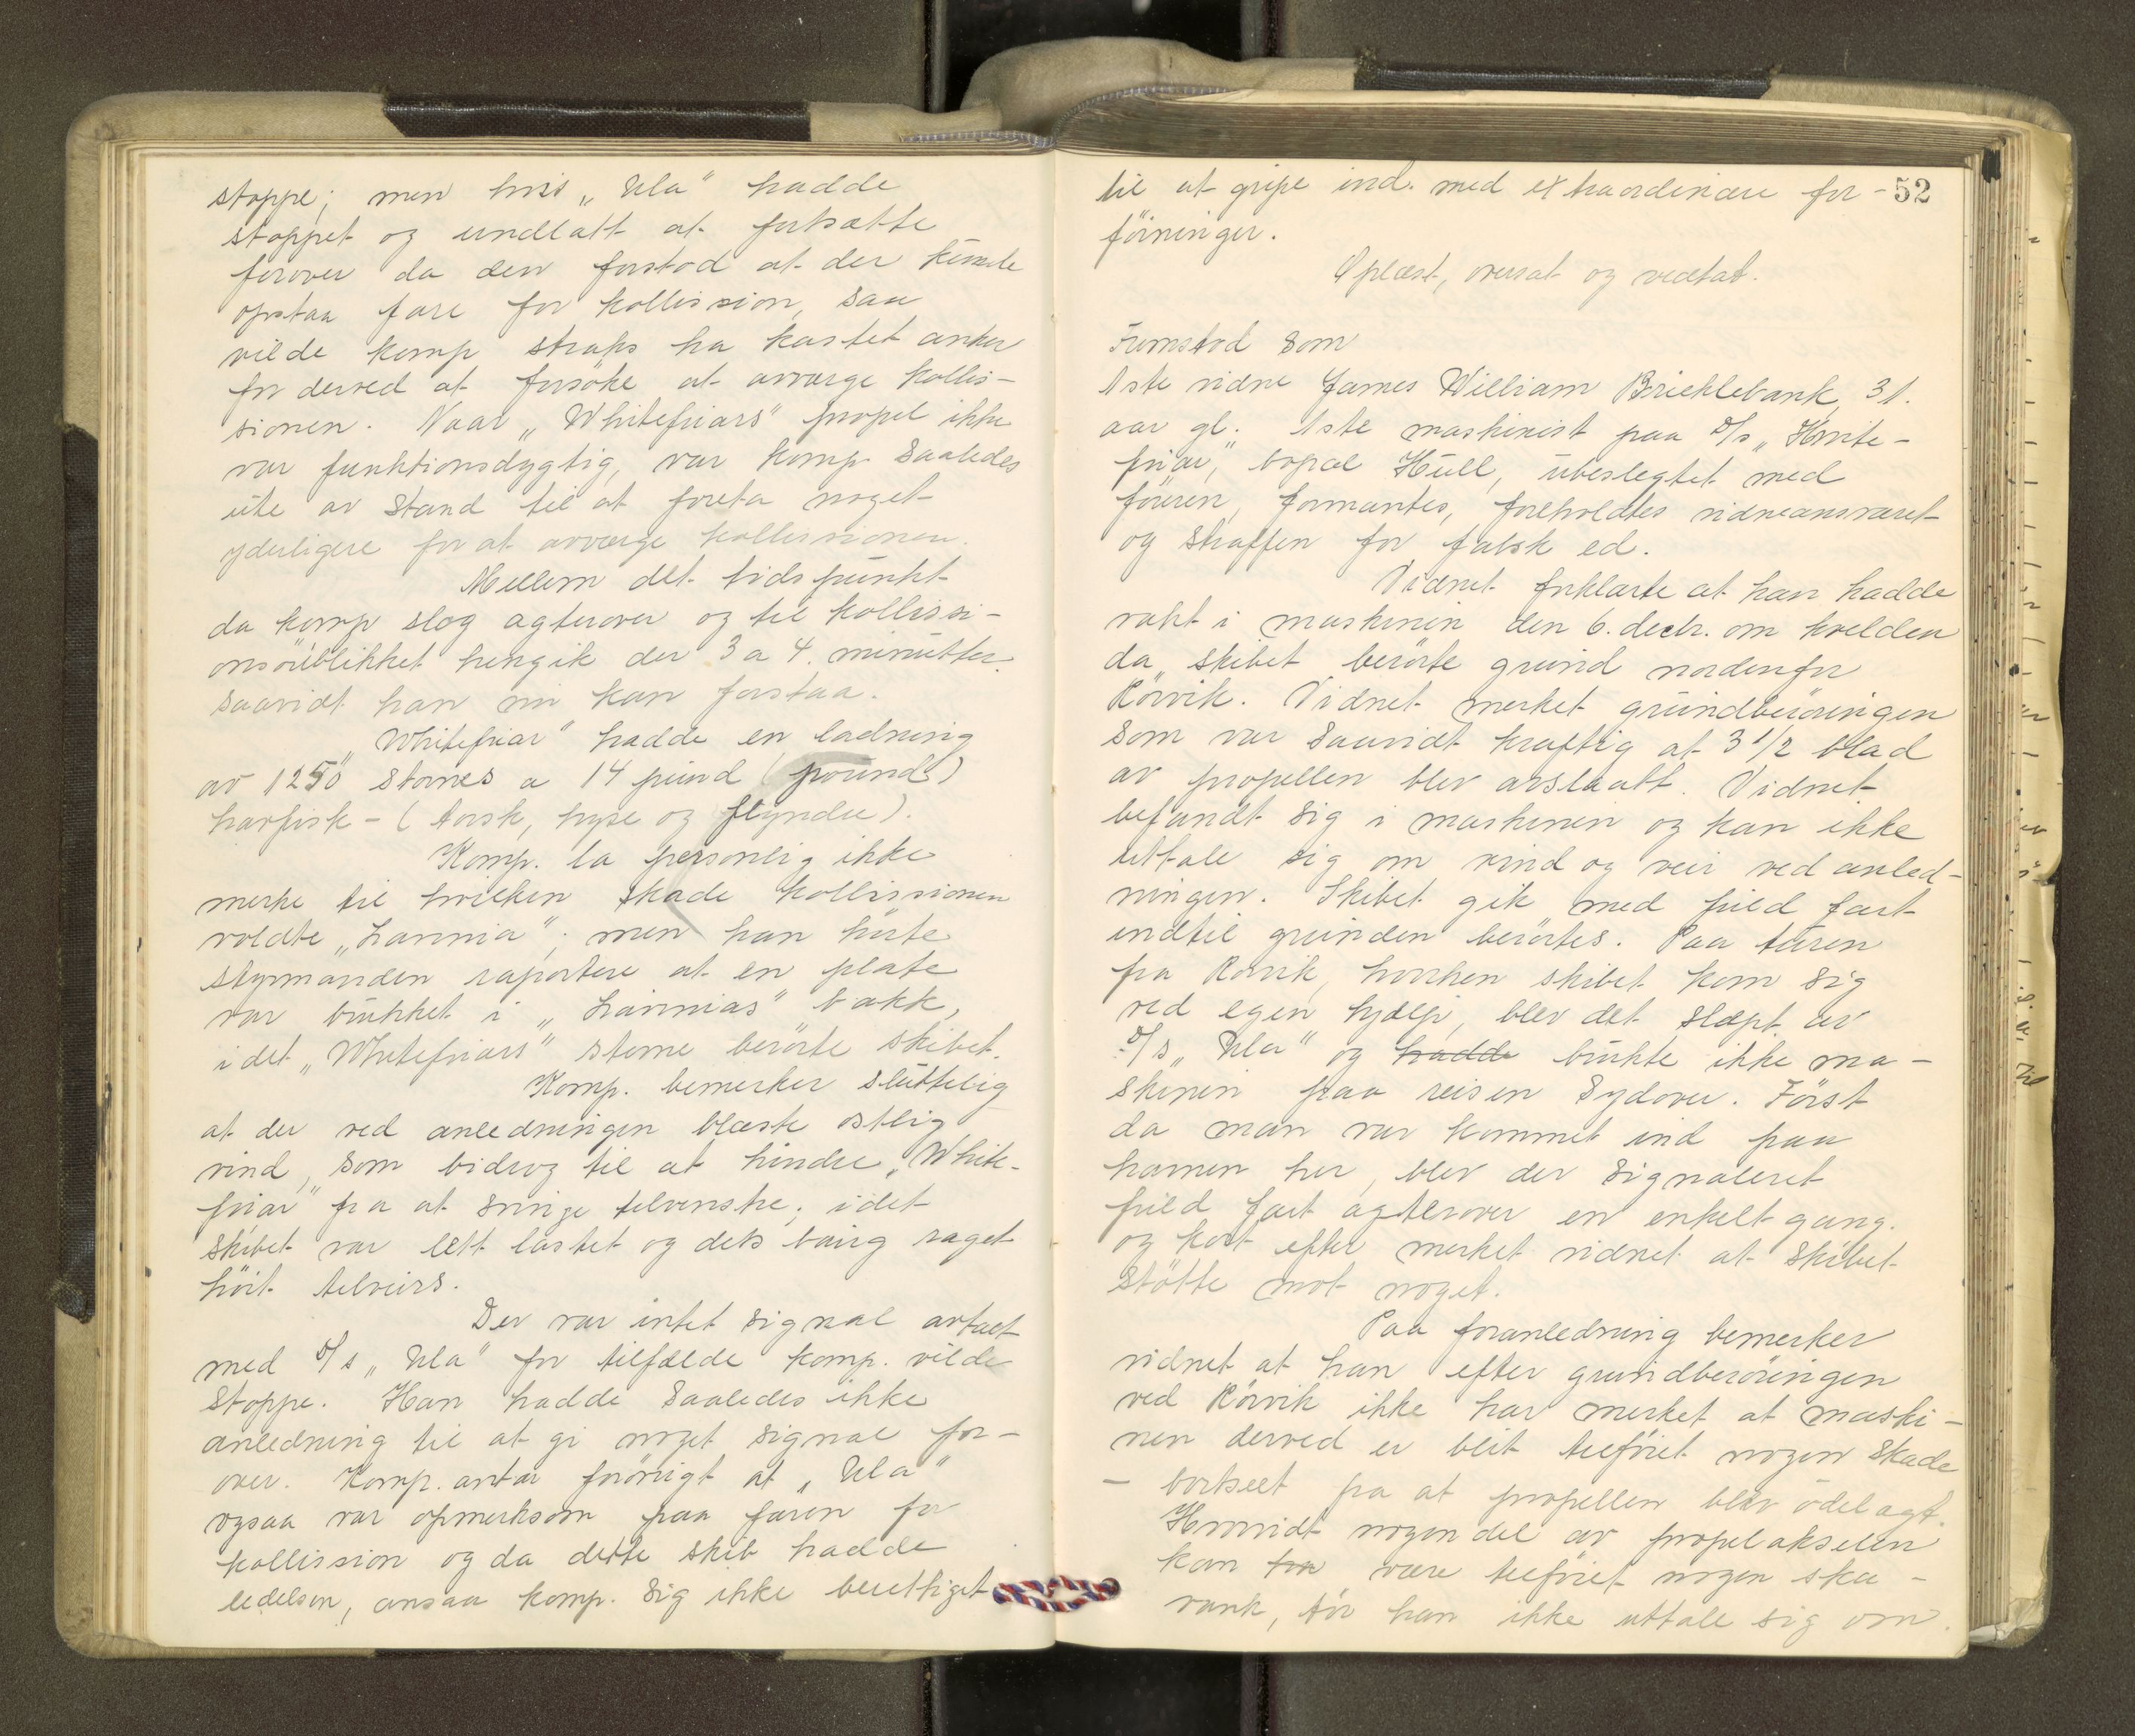 stoppe; men hvis „Ula" hadde
stoppet og undlatt at fortsætte
forover da den forstod at der kunde
opstaa fare for kollission, saa
vilde komp straks ha kastet anker
for derved at forsöke at avværge kollis-
sionen. Naar „Whitefriars" propel ikke
var funktionsdygtig, var komp saaledes
ute av stand til at foreta noget
yderligere for at avværge kollissionen.
Mellem det tidspunkt
da komp slog agterover og til kollissi-
onsöieblikket hengik der 3 a 4. minutter.
saavidt han nu kan forstaa.
„Whitefriar" hadde en ladning
av 1250 stones a 14 pund (pounds)
havfisk - (torsk, hyse og flyndre).
Komp. la personlig ikke
merke til hvilken skade kollissionen
voldte „Lannia"; men han hörte
styrmanden raportere at en plate
var brukket i „Lannias" bakk,
idet „Whitefriars" stevne berörte skibet.
Komp. bemerker sluttelig
at der ved anledningen blæste östlig
vind, som bidrog til at hindre „White-
friar" fra at svinge tilvenstre; idet
skibet var lett lastet og dets baug raget
höit tilveirs.
Der var intet signal avtalt
med D/s „Ula" for tilfælde komp. vilde
stoppe. Han hadde saaledes ikke
anledning til at gi noget signal for-
over. Komp. antar forövrigt at „Ula"
ogsaa var opmerksom paa faren for
kollission og da dette skib hadde
ledelsen, ansaa komp. sig ikke berettiget
52
til at gripe ind. med extraordinære for-
föininger.
Oplæst, oversat og vedtat.
Fremstod som
1ste vidne James William Bricklebank, 31.
aar gl. 1ste maskinist paa D/s „Hvite-
friar," bopæl Hull, ubeslegtet med
föreren, formantes, foreholdtes vidneansvaret
og straffen for falsk ed.
Vidnet forklarte at han hadde
vakt i maskinen den 6. decbr. om kvelden
da skibet berörte grund nordenfor
Rörvik. Vidnet merket grundberöringen
som var saavidt kraftig at 3 1/2 blad
av propellen blev avslaatt. Vidnet
befandt sig i maskinen og kan ikke
uttale sig om vind og veir ved anled-
ningen. Skibet gik med fuld fart
indtil grunden berörtes. Paa turen
fra Rörvik, hvorhen skibet kom sig
ved egen hjælp, blev det slæpt av
D/s „Ula" og hadde brukte ikke ma-
skinen paa reisen sydover. Först
da man var kommet ind paa
havnen her, blev der signaleret
fuld fart agterover en enkelt gang.
og kort efter merket vidnet at skibet
stötte mot noget.
Paa foranledning bemerker
vidnet at han efter grundberöringen
ved Rörvik ikke har merket at maski-
nen derved er blit tilföiet nogen skade
- bortseet fra at propellen blev ödelagt.
Hvorvidt nogen del av propelakselen
kan være tilföiet nogen ska-
vank, tör han ikke uttale sig om.